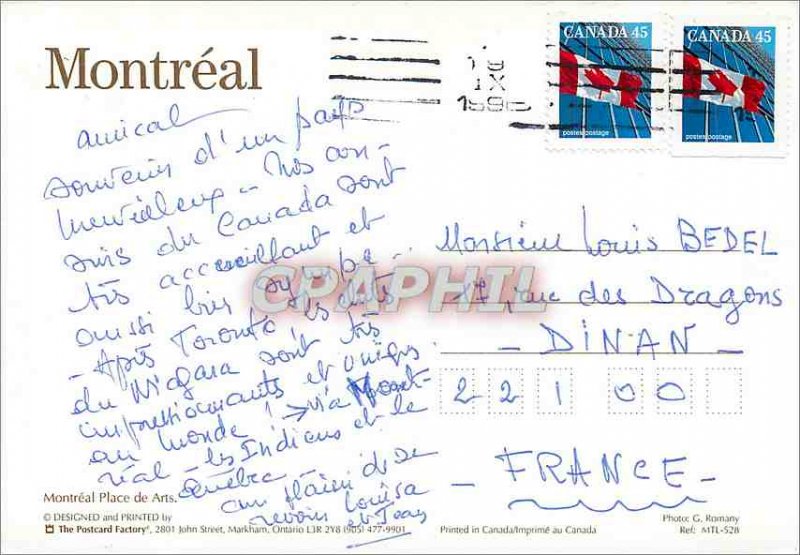 Montréal
19
IX
CANADA 45
postes postage
CANADA 45
postes postage
amical
souvenir d'un pays
merveilleux - Nos cou-
sins du Canada sont
très accueillant et
aussi très sympa -
- Après Toronto les chutes
du Niagara sont très
impressionnants et uniques
au monde ! → via Mont-
réal - les Indiens et le
Québec
au plaisir de se
revoir Louisa
et Jean
CPAPHIL
Monsieur Louis BEDEL
17, rue des Dragons
- DINAN -
22100
- FRANCE -
Montréal Place de Arts.
© DESIGNED and PRINTED by
The Postcard Factory, 2801 John Street, Markham, Ontario L3R 2Y8 (905) 477-9901
Printed in Canada/Imprimé au Canada
Photo: G. Romany
Ref: MTL-528